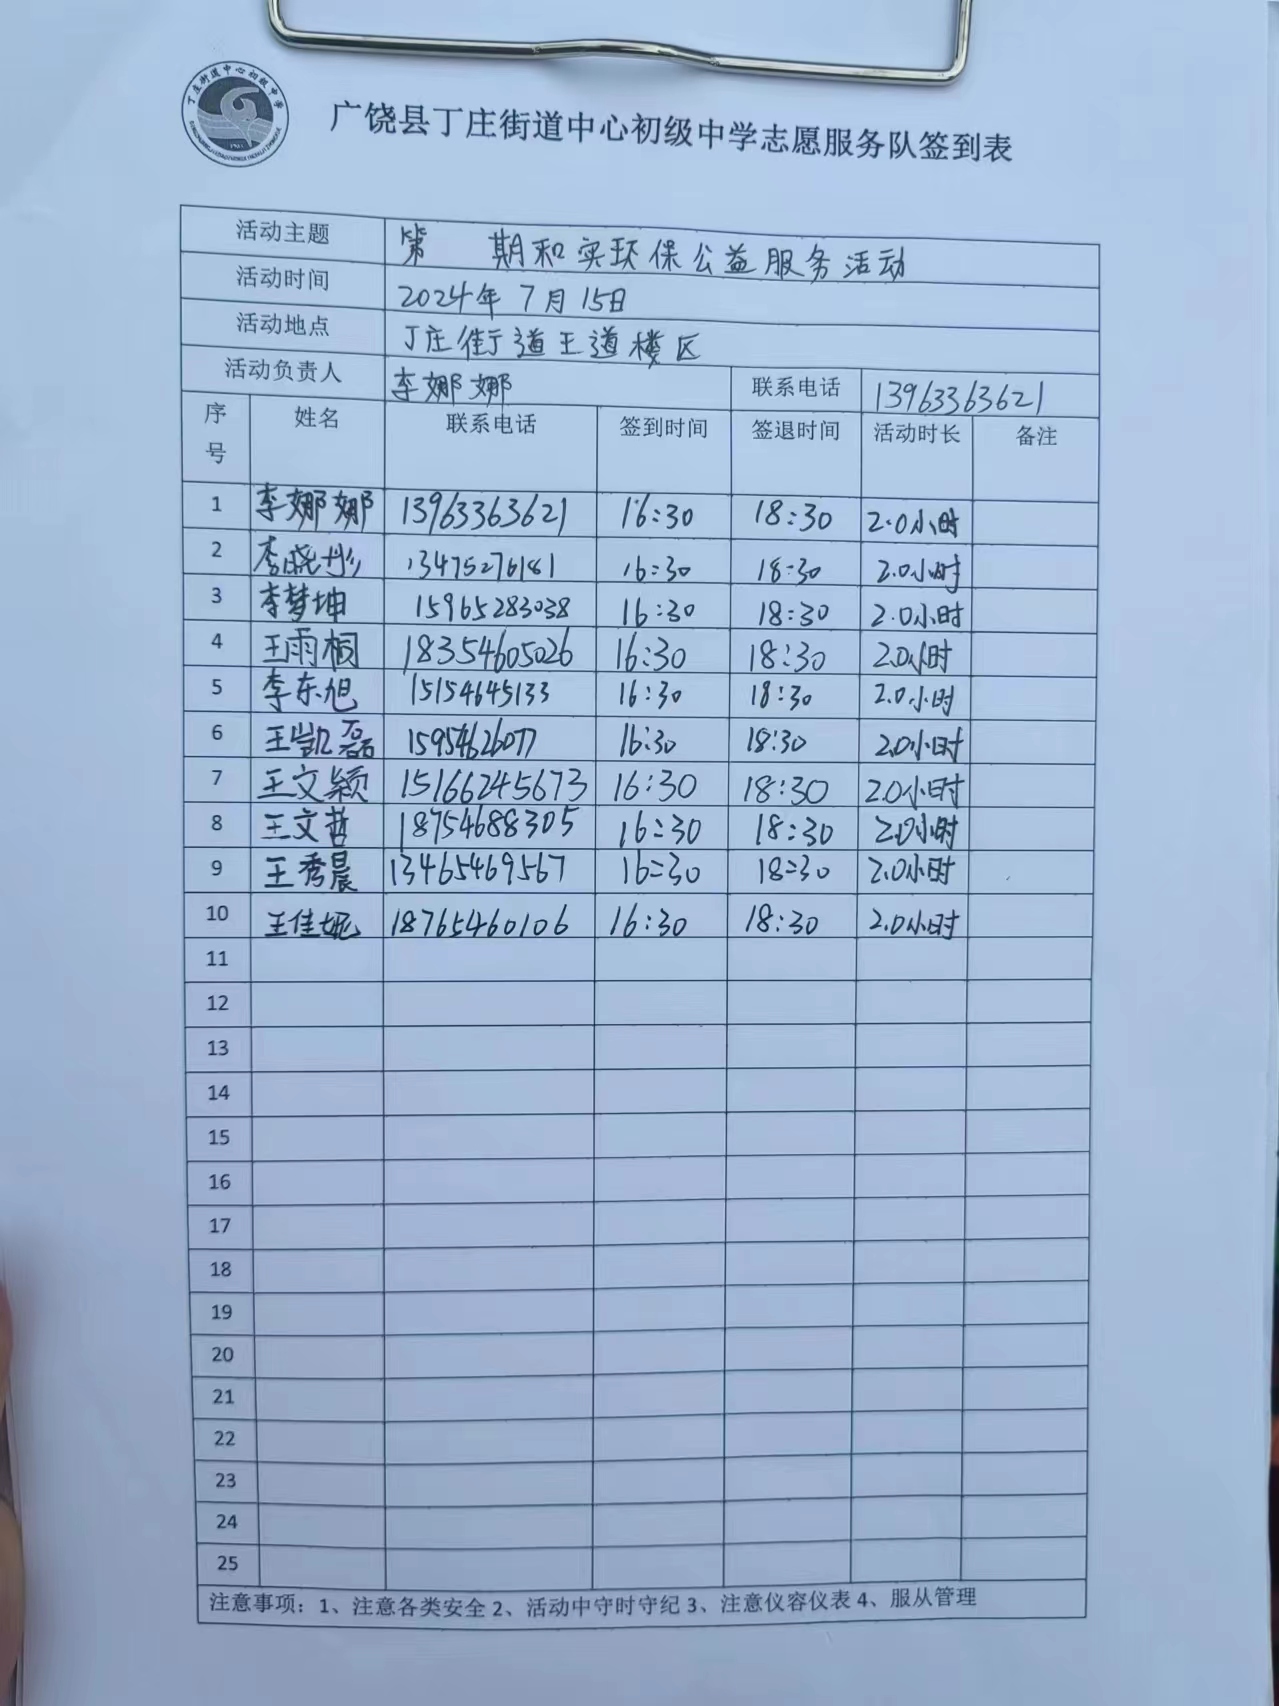 丁庄街道中心初级中学
广饶县丁庄街道中心初级中学志愿服务队签到表
活动主题 第 期和实环保公益服务活动
活动时间 2024年7月15日
活动地点 丁庄街道王道楼区
活动负责人 李娜娜 联系电话 13963363621
序号 姓名 联系电话 签到时间 签退时间 活动时长 备注
1 李娜娜 13963363621 16:30 18:30 2.0小时
2 李晓彤 13475276181 16:30 18:30 2.0小时
3 李梦坤 15965283038 16:30 18:30 2.0小时
4 王雨桐 18354605026 16:30 18:30 2.0小时
5 李东旭 15154645133 16:30 18:30 2.0小时
6 王凯磊 15954626077 16:30 18:30 2.0小时
7 王文颖 15166245673 16:30 18:30 2.0小时
8 王文哲 18754688305 16:30 18:30 2.0小时
9 王秀晨 13465469567 16:30 18:30 2.0小时
10 王佳妮 18765460106 16:30 18:30 2.0小时
11
12
13
14
15
16
17
18
19
20
21
22
23
24
25
注意事项：1、注意各类安全 2、活动中守时守纪 3、注意仪容仪表 4、服从管理